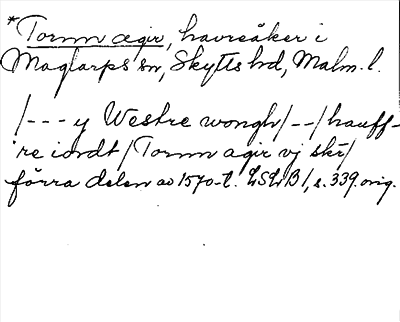 *Tornn agir, havreåker i
Maglarps sn, Skytts hd, Malm. l.
/--- y Westre wongh/--/hauff-
re iordt/Tornn agir vj skr/
förra delen av 1570-t. LSLB 1, s. 339. orig.